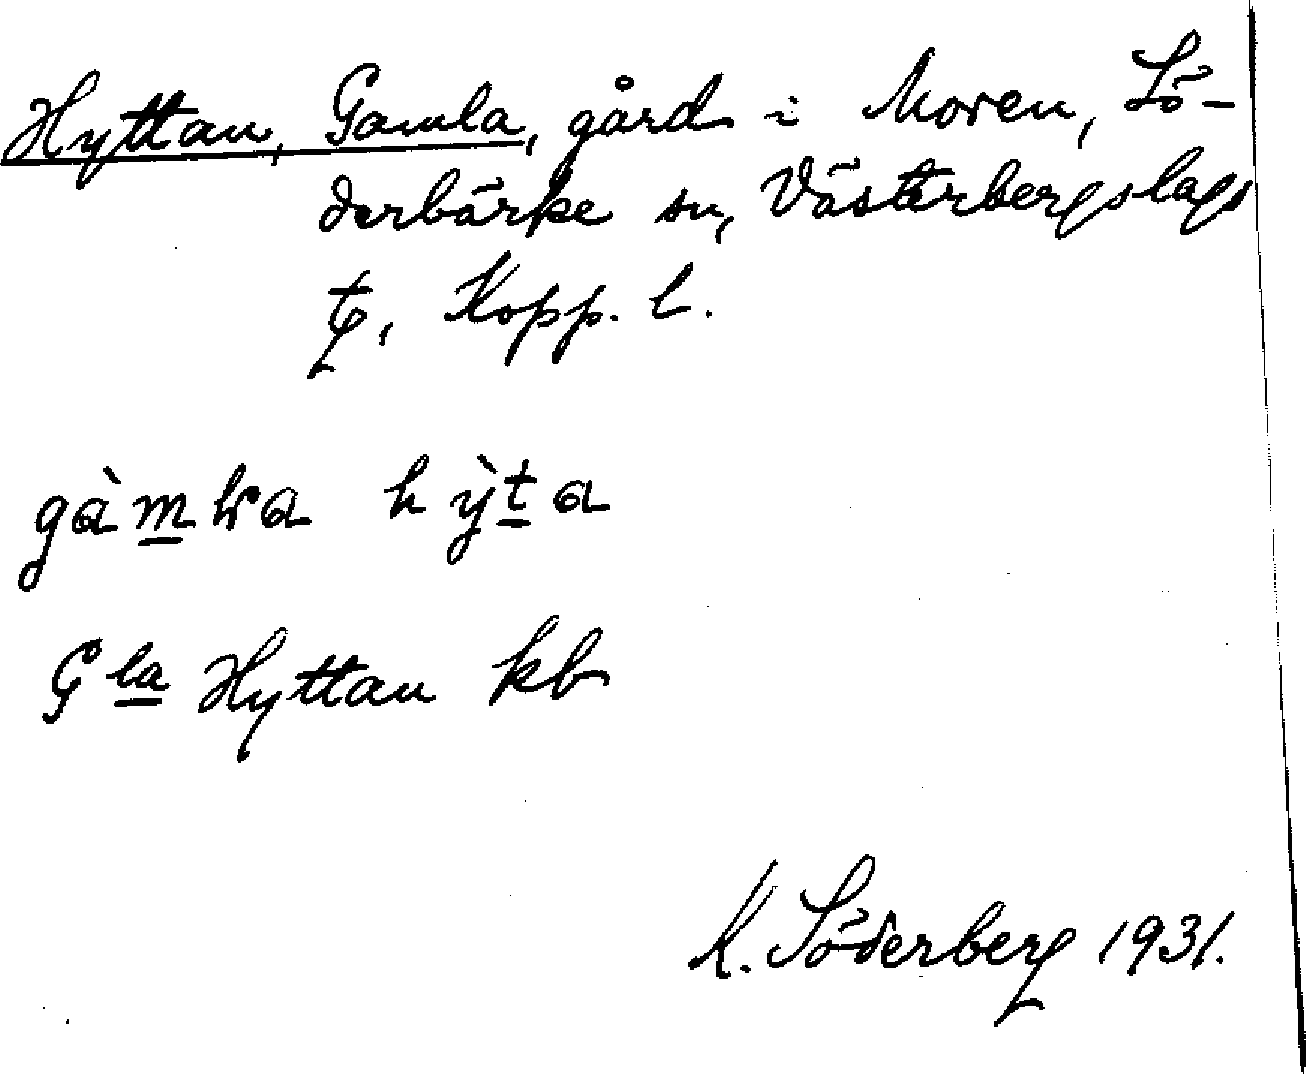 Hyttan, Gamla, gård i Moren, Sö-
derbärke sn, Västerbergslags
tg, Kopp. l.
gàm̲ła hỳt̲a
Gla Hyttan kb
K. Söderberg 1931.